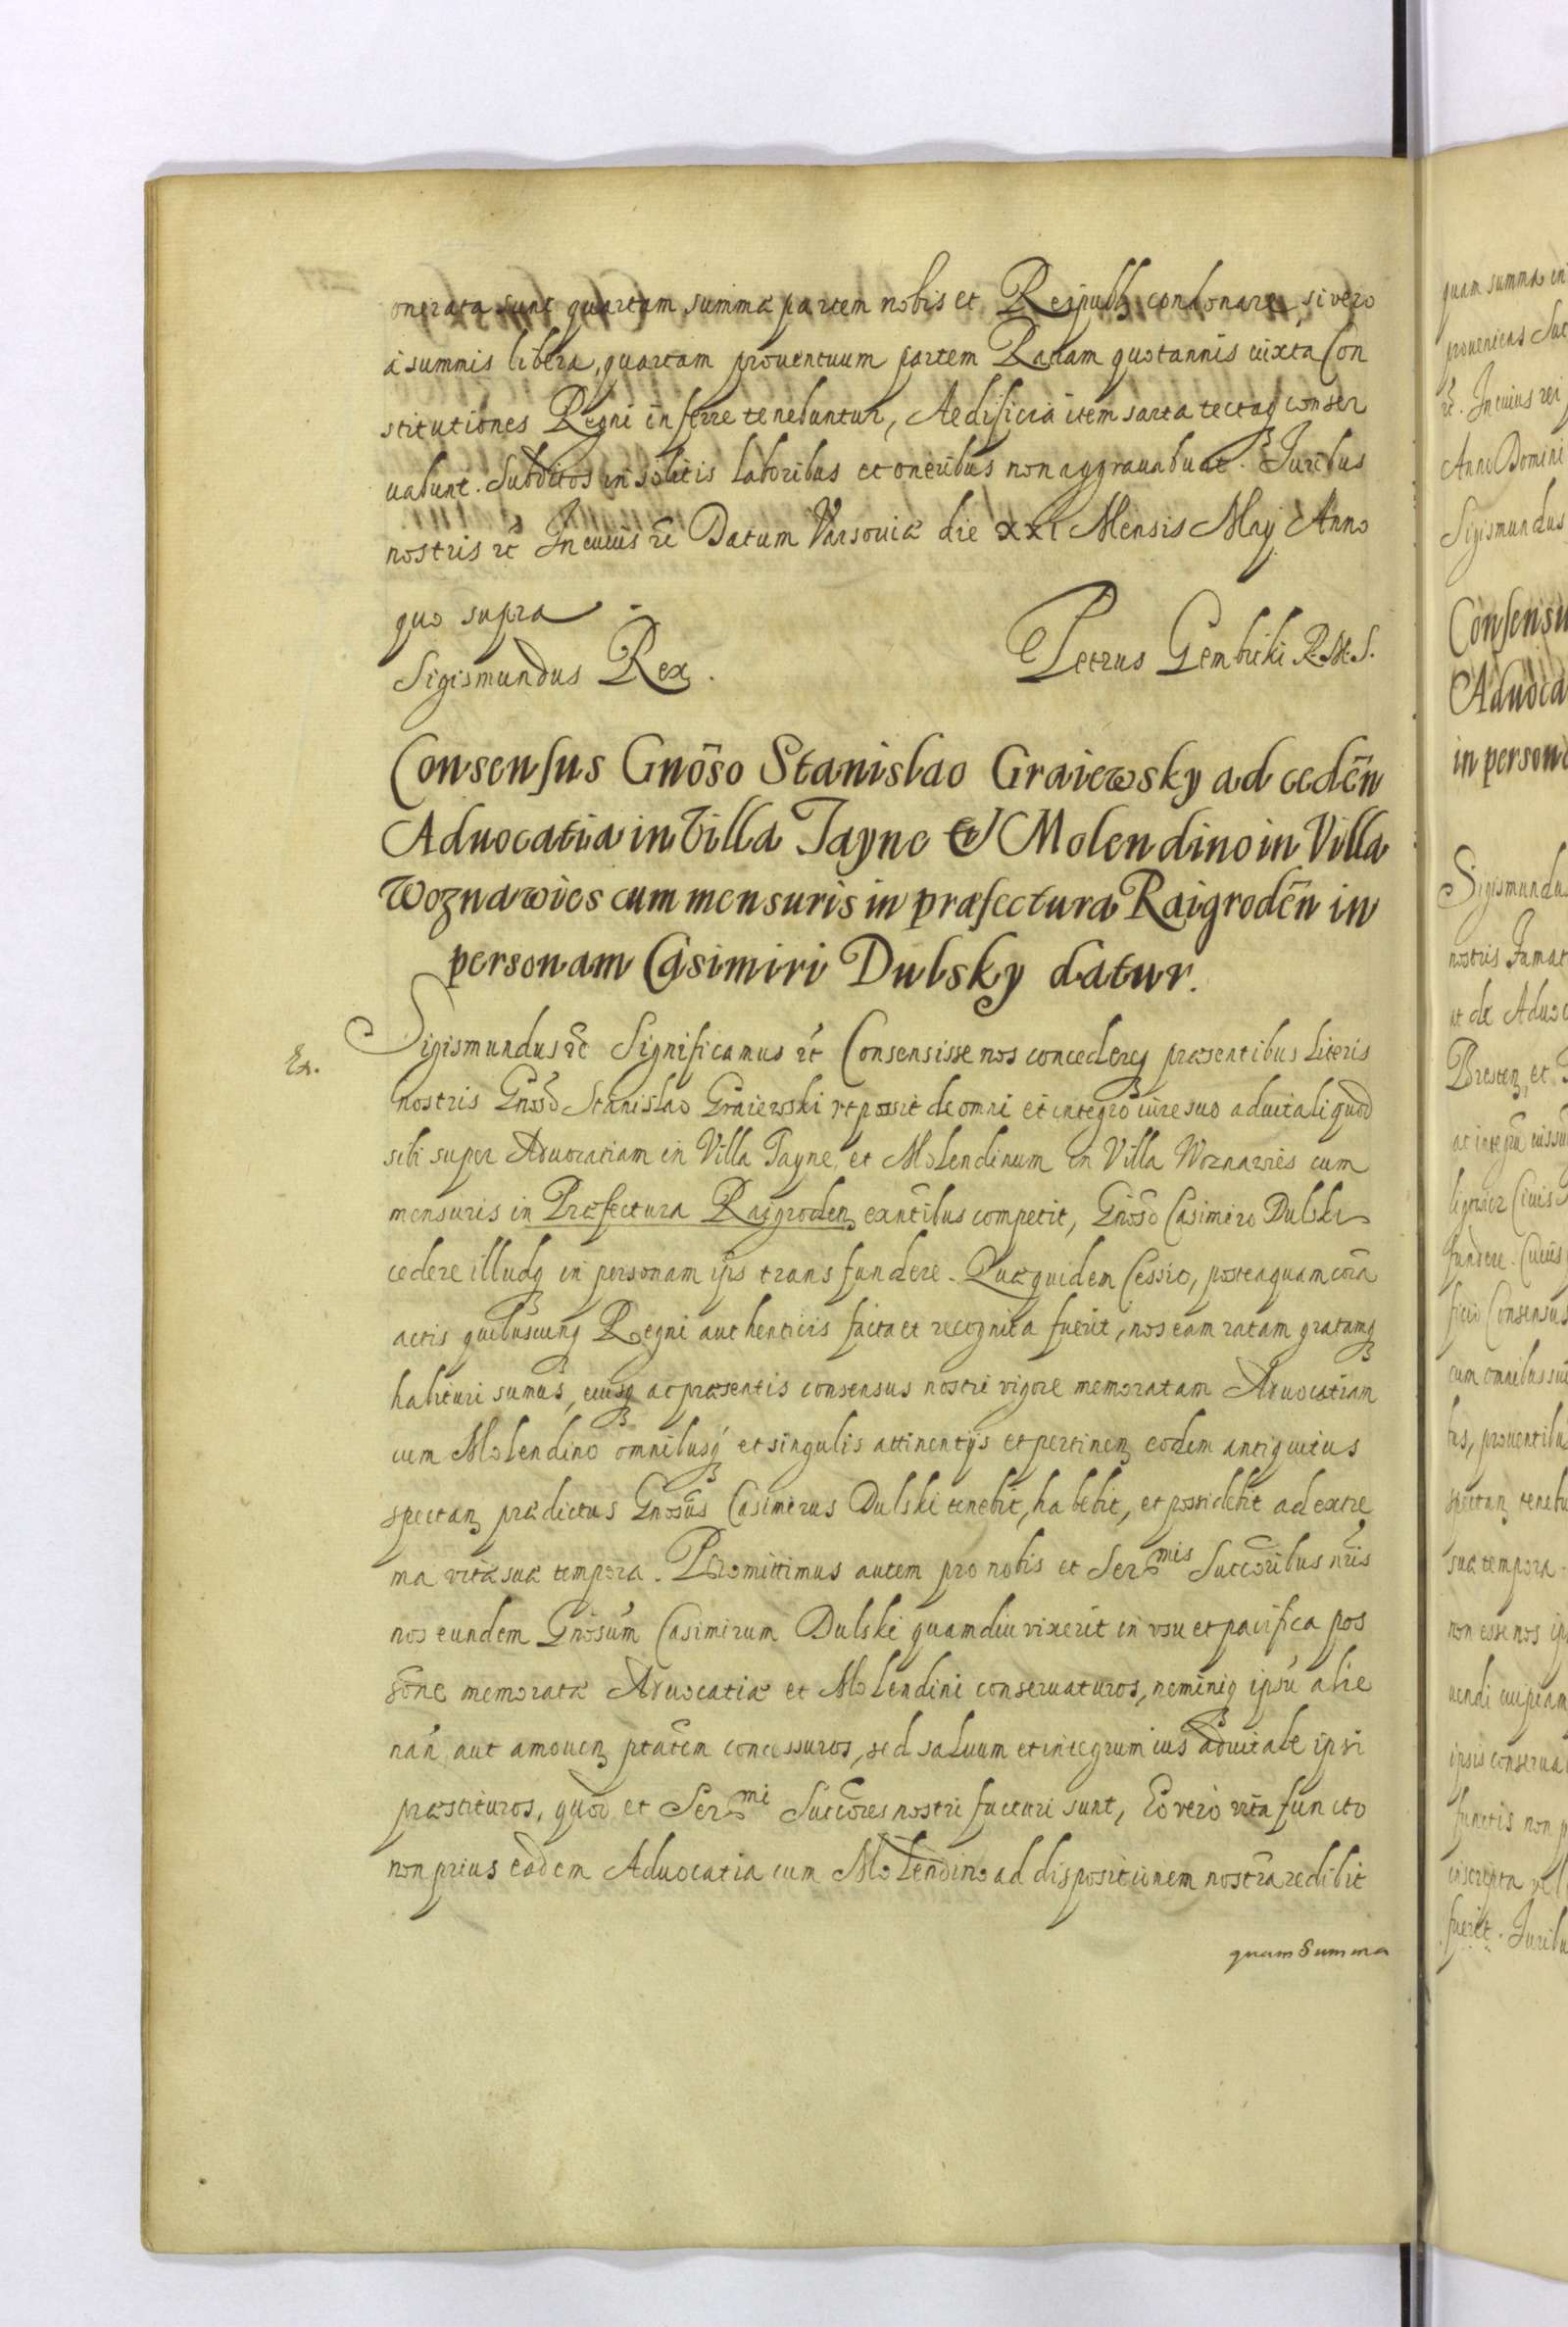 onerata sunt quartam summæ partem nobis et Reipubl: condonare, si vero
à summis libera, quartam prouentuum partem Rauam quotannis iuxta Con
stitutiones Regni inferre tenebuntur, Aedificia item sarta tectaq conser
uabunt. Subditos insolitis laboribus et oneribus non aggrauabunt. Iuribus
nostris etc In cuius rei Datum Varsouiæ die XXI Mensis Maij Anno
quo supra
Sigismundus Rex.
Petrus Gembicki R.M.S.
Consensus Gnõso Stanislao Graiewsky ad cedeñ
Aduocatia in Villa Tayne et Molendino in Villa
Woznawies cum mensuris in præfectura Raigrodeñ in
personam Casimiri Dulsky datur.
Ex.
Sigismundus etc Significamus etc Consensisse nos concedereq præsentibus literis
nostris Gnoso Stanislao Graiewski vt possit de omni et integro iure suo aduitali quod
sibi super Aduocatiam in Villa Tayne, et Molendinum in Villa Woznawies cum
mensuris in Præfectura Raigroden exantibus competit, Gnõso Casimiro Dulski
cedere illudq in personam ipsius transfundere. Quæ quidem Cessio, posteaquam corã
actis quibuscunq Regni authenticis facta et recognita fuerit, nos eam ratam gratamq
habituri sumus, eiusq ac præsentis consensus nostri vigore memoratam Aduocatiam
cum Molendino omnibusq et singulis attinentijs et pertinen eodem antiquitus
spectan prædictus Gnosus Casimirus Dulski tenebit, habebit, et possidebit ad extre
ma vitæ suæ tempora. Promittimus autem pro nobis et Sermis Succoribus nris
nos eundem Gnosum Casimirum Dulski quamdiu vixerit in vsu et pacifica pos
sone memoratæ Aduocatiæ et Molendini conseruaturos, neminiq ipsũ alie
nañ aut amouen ptatem concessuros, sed saluum et integrum ius aduitale ipsi
præstituros, quod et Sermi Succores nostri facturi sunt, Eo vero vita functo
non prius eadem Aduocatia cum Molendino ad dispositionem nostrã redibit
quam Summa
quam summa in
prouenieas Suc
etc. In cuius rei
Anno Domini
Sigismundus
Consensu
Aduoca
in persona
Sigismundus
nostris
ut de Aduoc
Bresten, et
ac integrũ
fundere. Cuius
Consensus
cum omnibus sui
bus, prouentibu
spectan tenebu
suæ tempora.
non esse nos ips
uendi cuipiam
ipsis conserua
functis non p
inscripta vel
fuerit. Iuribu